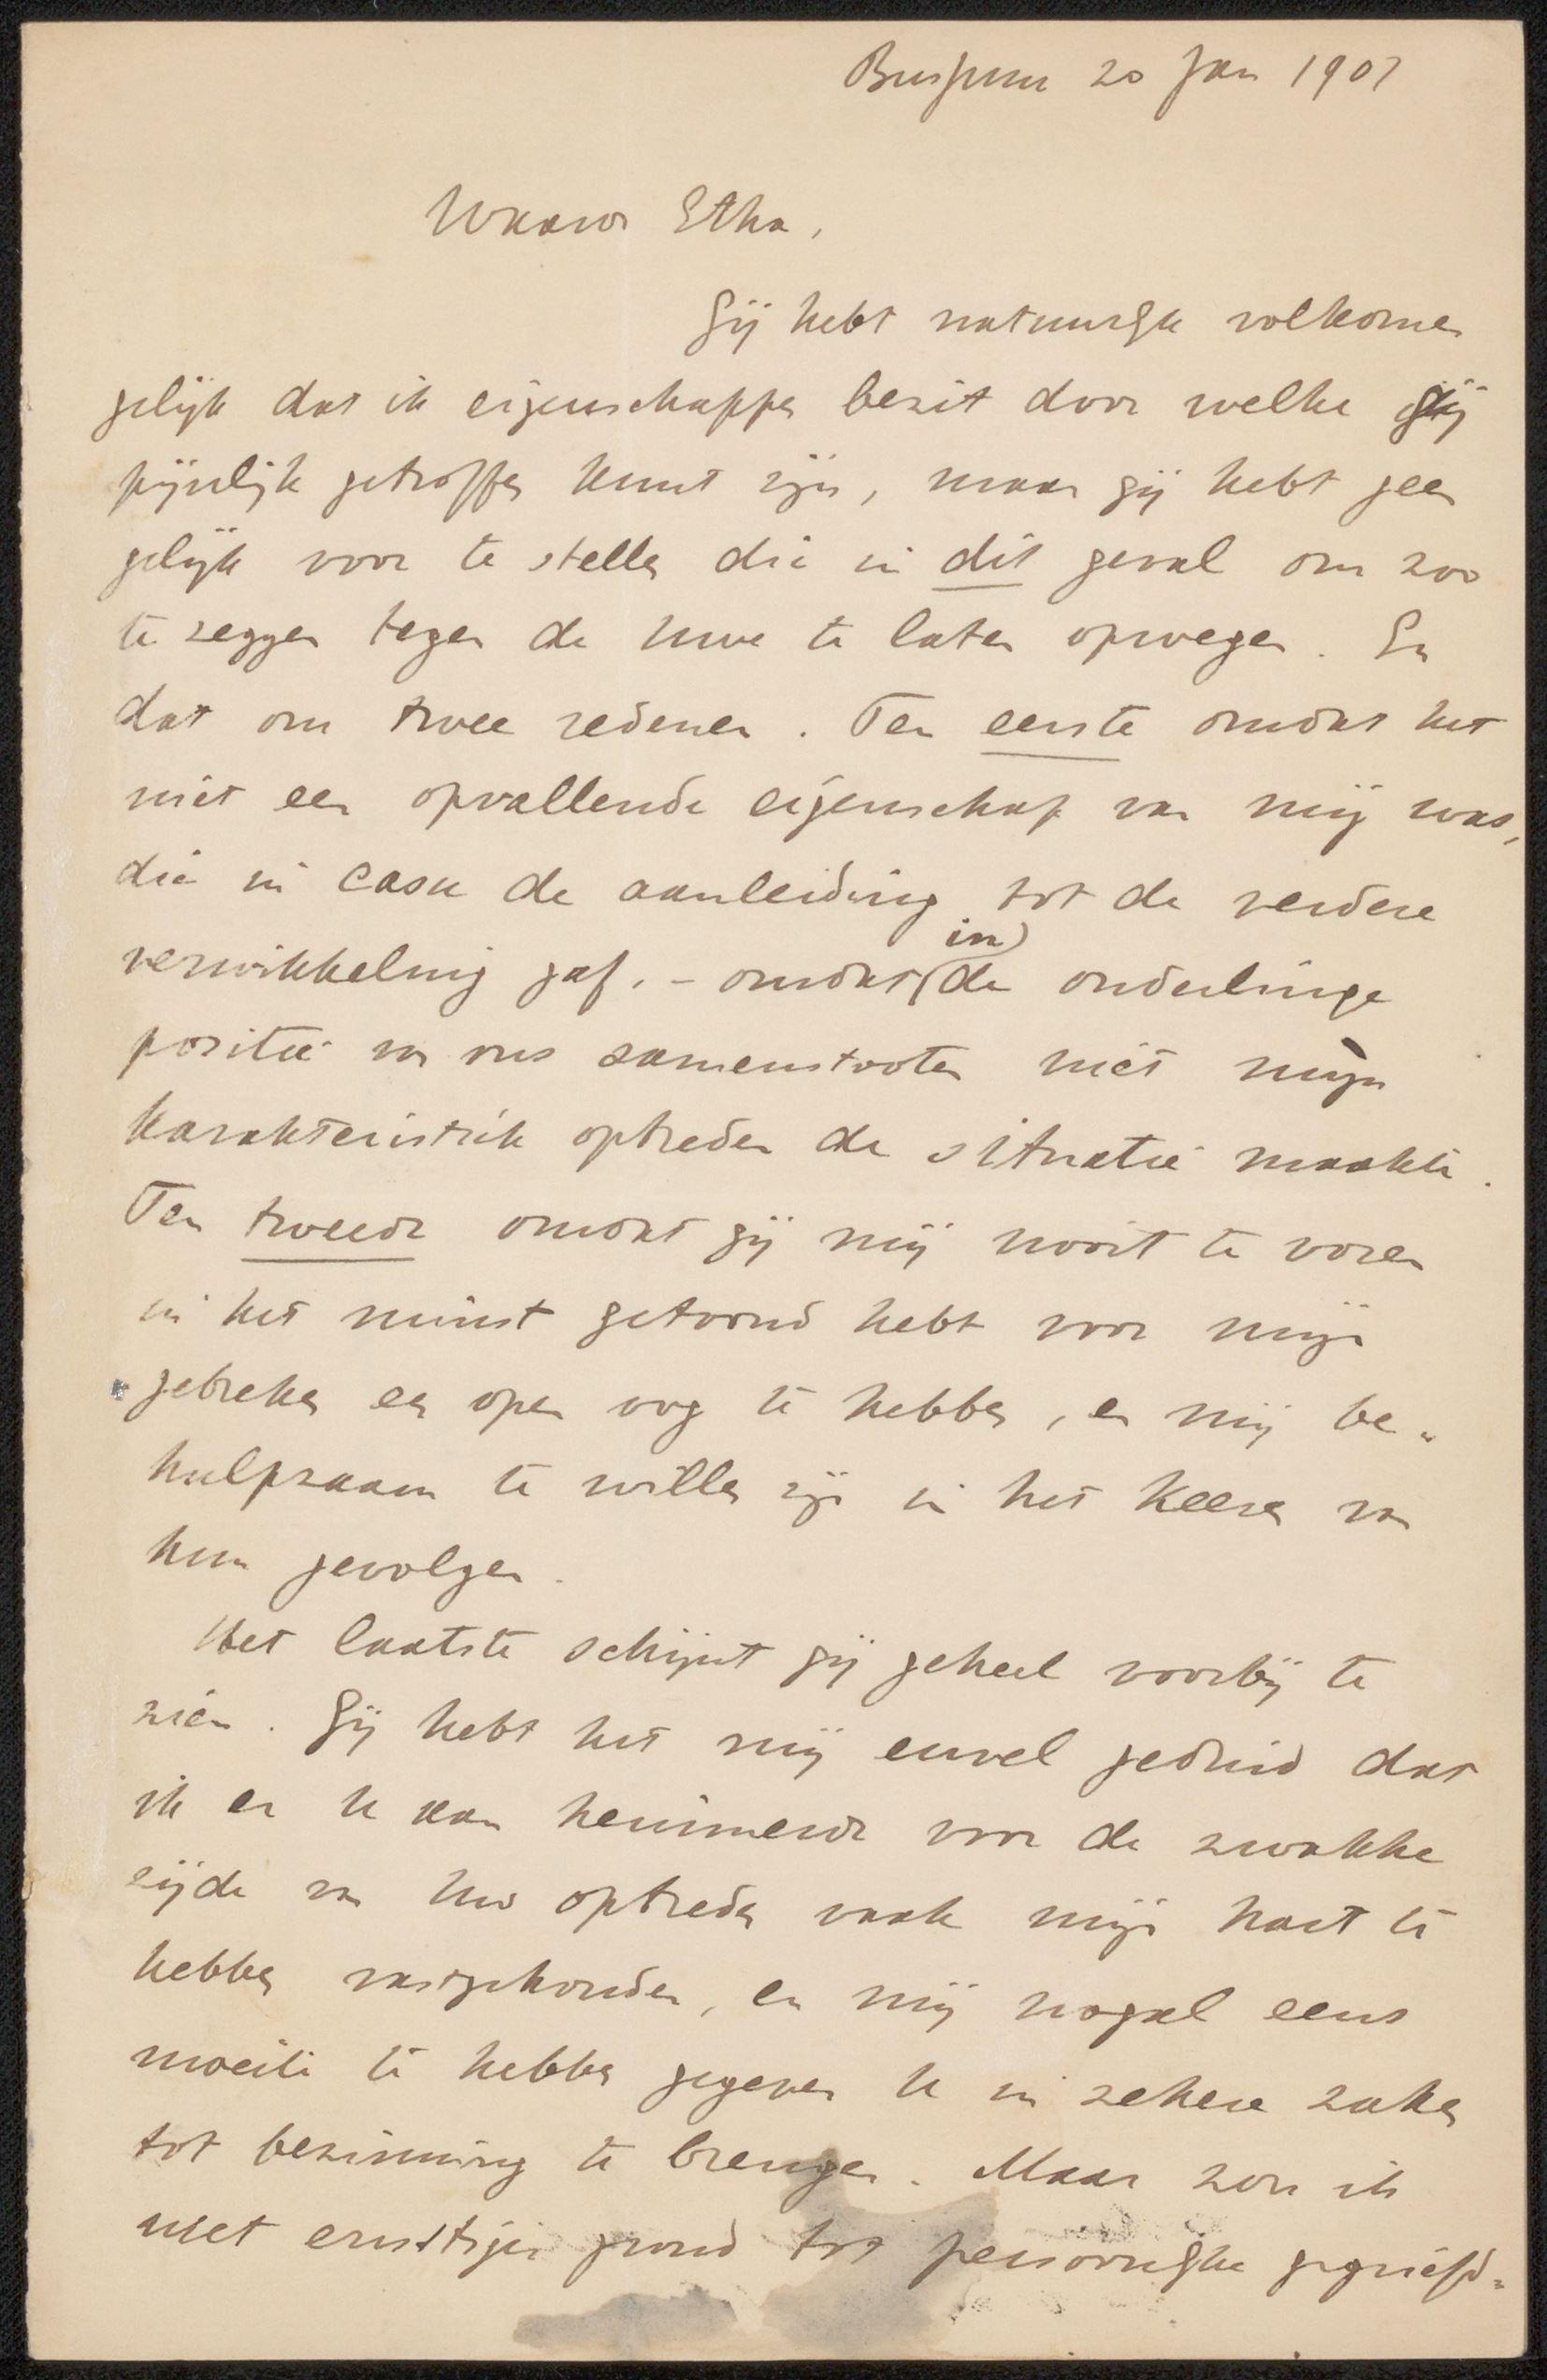 Bussum 20 Jan 1907
Waarde Etha,
Gij hebt natuurlijk volkomen
gelijk dat ik eigenschappen bezit door welke gij
pijnlijk getroffen kunt zijn, maar gij hebt geen
gelijk voor te stellen die in dit geval om zoo
te zeggen tegen de uwe te laten opwegen. En
dat om twee redenen. Ten eerste omdat het
niet een opvallende eigenschap van mij was,
die in casu de aanleiding tot de verdere
verwikkeling gaf. – omdat (in) de onderlinge
positie van ons samenstooten niet mijn
karakteristiek optreden de situatie maakte.
Ten tweede omdat gij mij nooit te voren
in het minst getoond hebt voor mijn
gebreken een open oog te hebben, en mij be-
hulpzaam te willen zijn in het keeren van
hun gevolgen.
Het laatste schijnt gij geheel voorbij te
zien. Gij hebt het mij euvel geduid dat
ik er u aan herinnerde voor de zwakke
zijde van uw optreden vaak mijn hart te
hebben vastgehouden, en mij nogal eens
moeite te hebben gegeven u in zekere zaken
tot bezinning te brengen. Maar zou ik
niet ernstiger grond tot persoonlijke gegriefd-